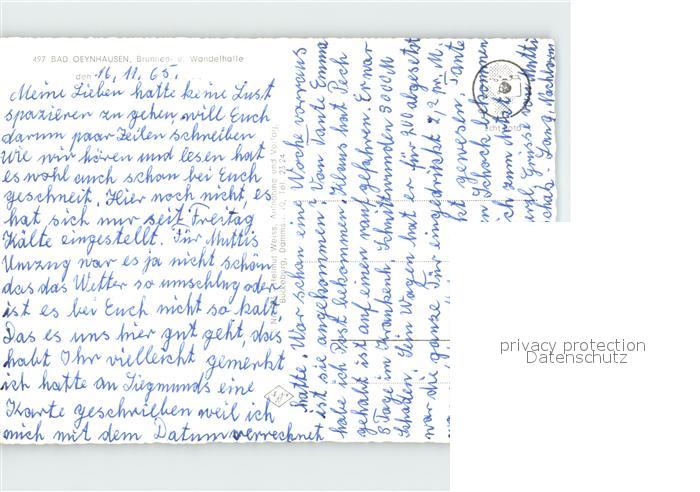 497 BAD OEYNHAUSEN, Brunnen- u. Wandelhalle
den 16.11.65.
Meine Lieben hatte keine Lust
spazieren zu gehen, will Euch
darum paar Zeilen schreiben
Wie wir hören und lesen hat
es wohl auch schon bei Euch
geschneit. Hier noch nicht, es
hat sich nur seit Freitag
Kälte eingestellt. Für Muttis
Umzug war es ja nicht schön
das das Wetter so umschlug oder
ist es bei Euch nicht so kalt.
Das es uns hier gut geht, das
habt Ihr vielleicht gemerkt
ich hatte an Siegmunds eine
Karte geschrieben weil ich
mich mit dem Datum verrechnet
hatte. War schon eine Woche vorraus
ist sie angekommen? Von Tante Emma
habe ich Post bekommen. Klaus hat Pech
gehabt ist auf einen raufgefahren. Er war
8 Tage im Krankenh. Schnittwunden 3000 M
Schaden. Sein Wagen hat er für 200 abgesetzt
war die ganze Tür eingedrückt
gewesen. Tante
Schock bekommen
ich zum Arzt
viel Grüsse von Mutti
privacy protection
Datenschutz